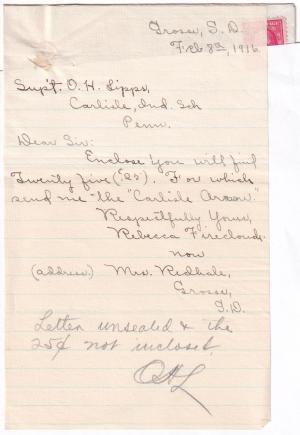 Grosse, S. D.
Feb 8th, 1916
Sup't. O. H. Lipps,
Carlisle, Ind. Sch
Penn.
Dear Sir:
Enclose you will find
Twenty five (25). For which
send me "the "Carlisle Arrow."
Respectfully Yours,
Rebecca Firecloud.
now
(address.) Mrs. Redhale,
Grosse,
S.D.
Letter unsealed & the
25¢ not inclosed.
OHL